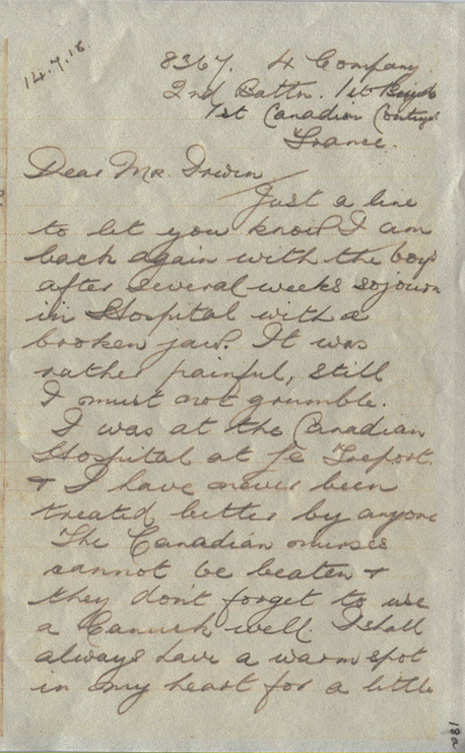 14.7.15.
8367. 4 Company
2nd Battn. 1st Brigde
1st Canadian Contigt
France.
Dear Mr. Irwin
Just a line
to let you know I am
back again with the boys
after several weeks sojourn
in Hospital with a
broken jaw. It was
rather painful, still
I must not grumble.
I was at the Canadian
Hospital at Le Treport.
& I have never been
treated better by anyone
The Canadian nurses
cannot be beaten &
they don't forget to use
a Canuck well. I shall
always have a warm spot
in my heart for a little
180